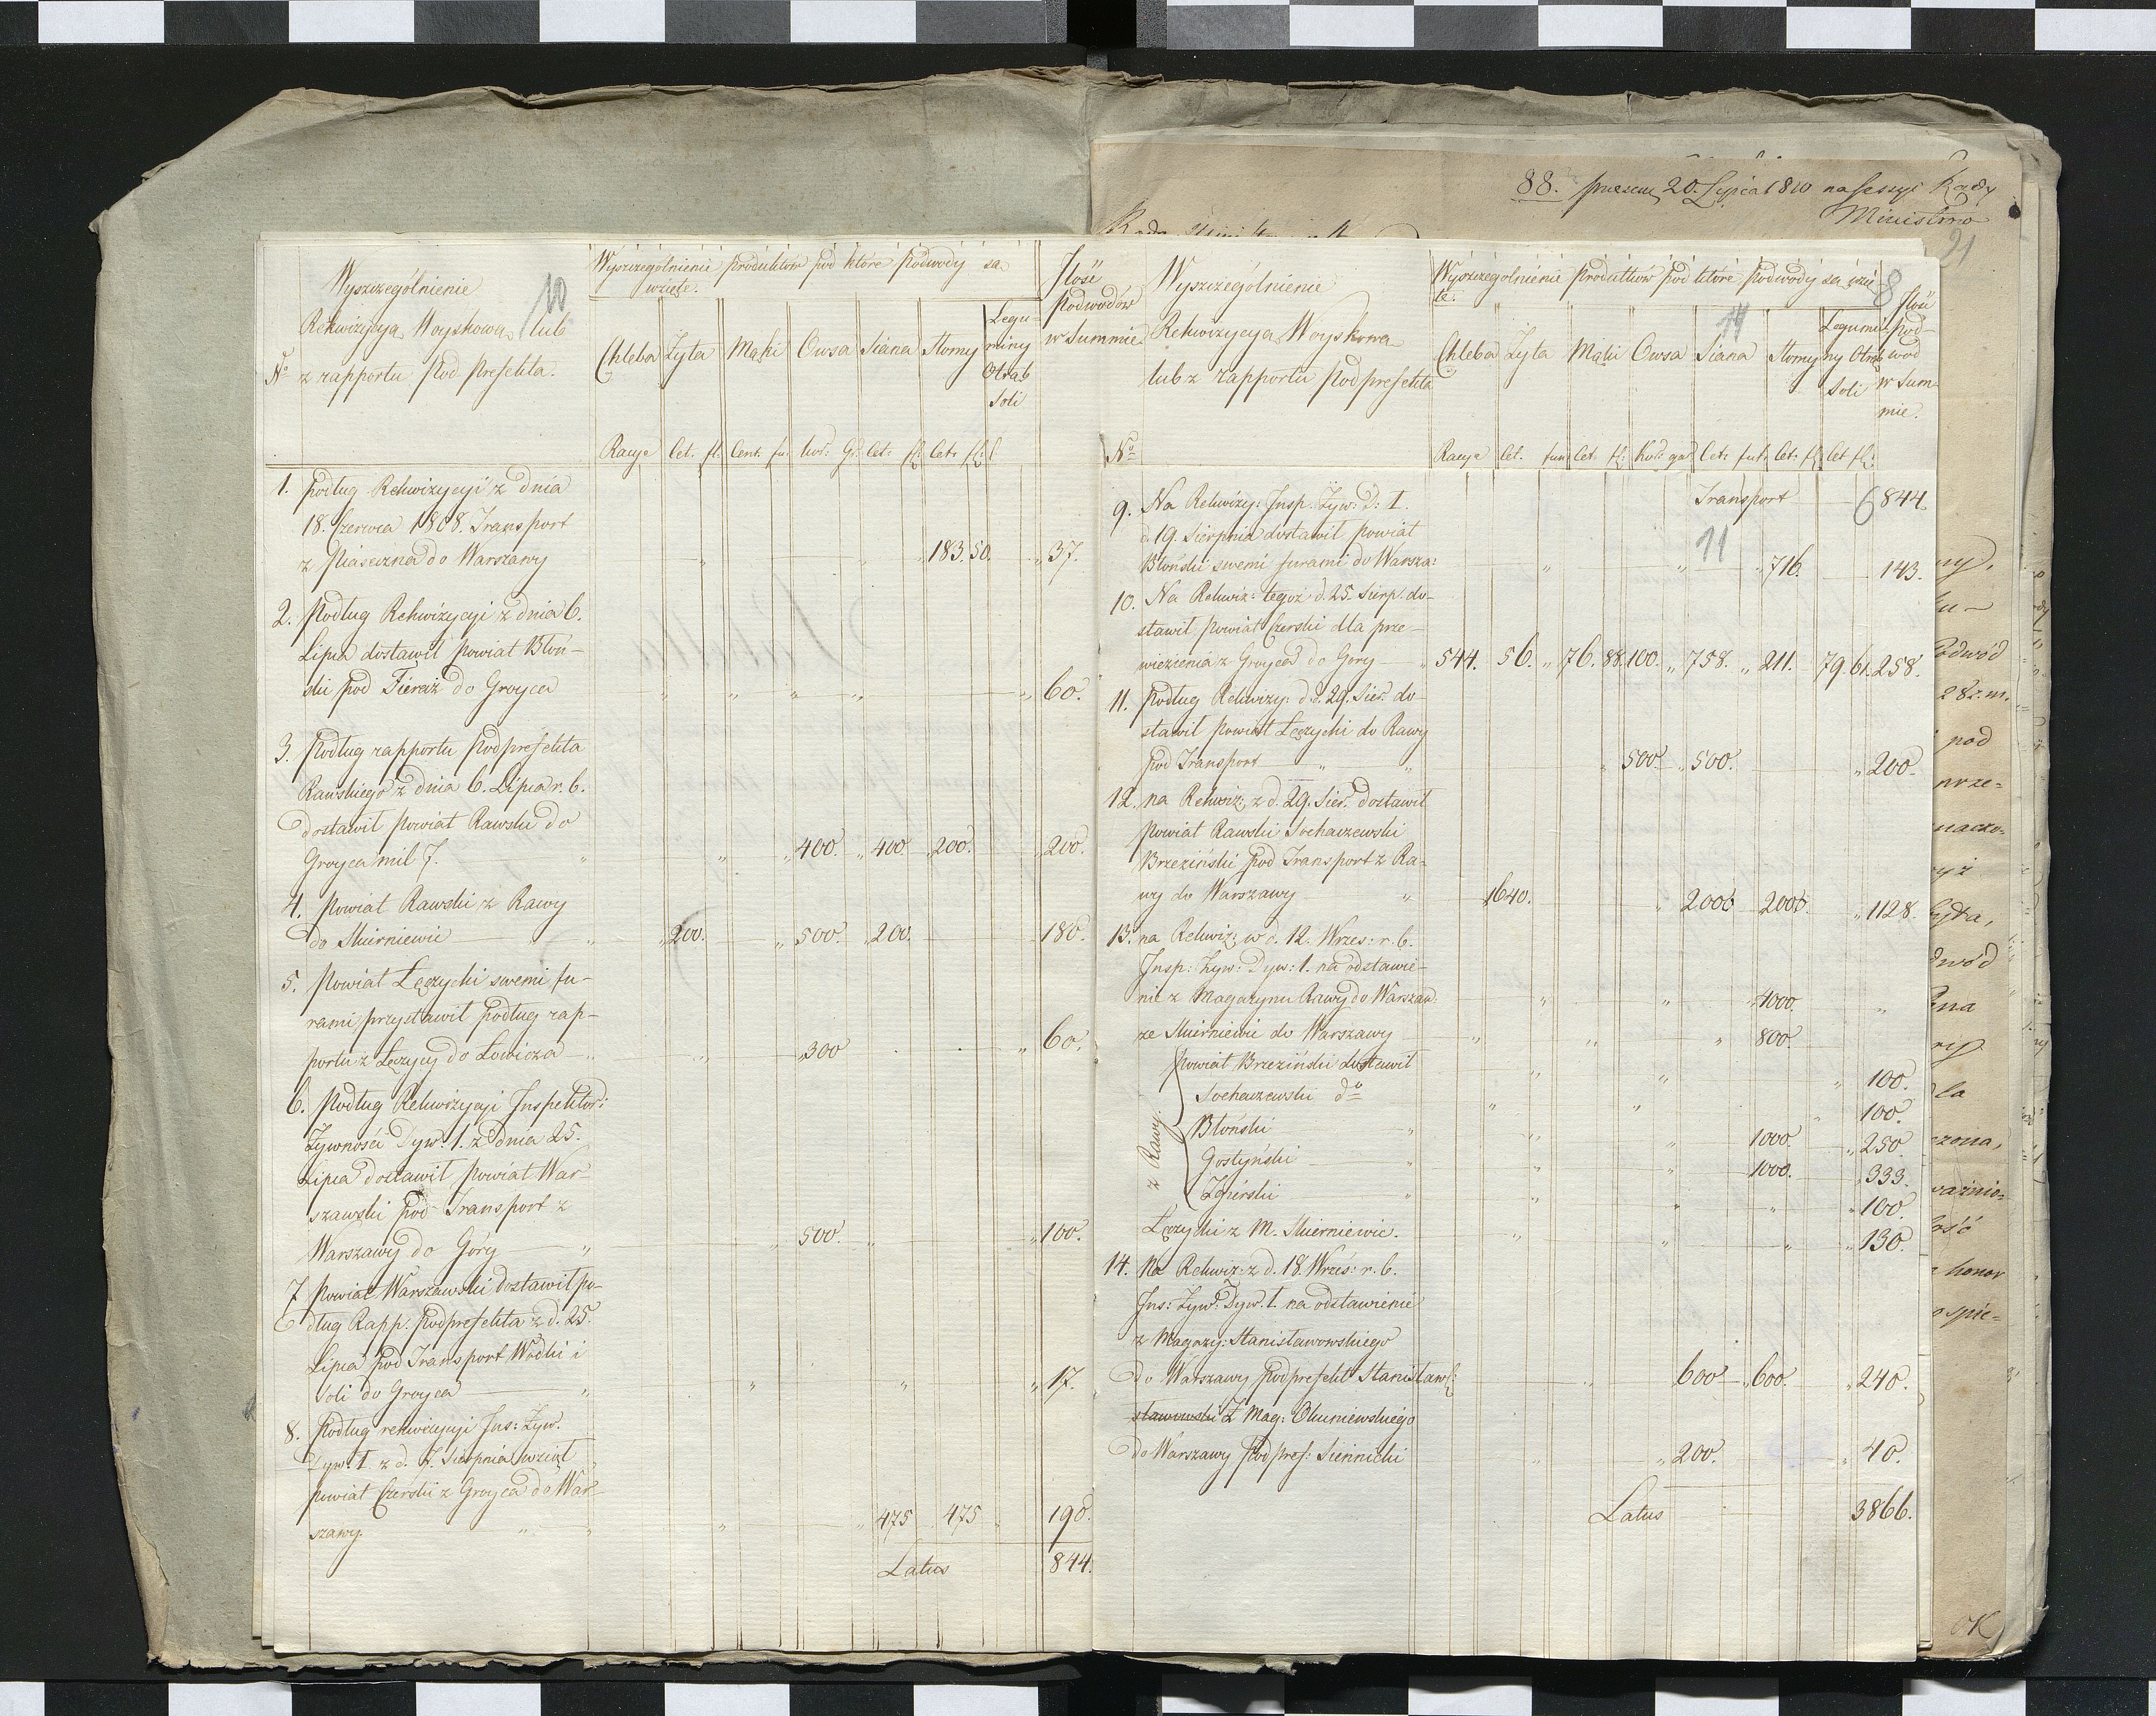 88. praesen 20. Lipca 1810 na Sessyi Rady
Ministrow
21
Wyszczególnienie
Rekwizycya Woyskowa lub
N° z rapportu Pod-prefekta.
10
Wyszczególnienie produktów pod które Podwody są
wzięte.
Chleba Żyta Mąki Owsa Siana Słomy
Legu-
miny
Otrąb
Soli
Ilość
Podwodów
w Summie
Racye Cet. fl. Cent. fu. kor: Gr. Cet: fl: Cet: fl:
1. podług Rekwizycyi z dnia
18. Czerwca 1808. Transport
z Piaseczna do Warszawy 183. 50. 37.
2. Podług Rekwizycyi z dnia 6.
Lipca dostawił Powiat Błoń-
ski pod Ciężar do Groyca 60.
3. Podług rapportu Podprefekta
Rawskiego z dnia 6. Lipca r. b.
dostawił Powiat Rawski do
Groyca mil 7. 400. 400 200. 200.
4. Powiat Rawski z Rawy
do Skierniewic 200. 500. 200. 180.
5. Powiat Łęczycki swemi fu-
rami przystawił podług rap-
portu z Łęczycy do Łowicza 300 60.
6. Podług Rekwizycyi Inspektor:
Żywności Dyw. 1. z dnia 25.
Lipca dostawił Powiat War-
szawski pod Transport z
Warszawy do Góry 500. 100.
7. Powiat Warszawski dostawił po-
dług Rapp. Podprefekta z d. 25.
Lipca pod Transport Wódki i
Soli do Groyca 17.
8. Podług rekwizycyi Ins: Żyw.
Dyw. I z d. 7. Sierpnia wziął
powiat Czerski z Groyca do War-
szawy. 475 475 190.
Latus 844.
Wyszczególnienie
Rekwizycya Woyskowa
lub z rapportu Podprefekta
N°
Wyszczególnienie produktów pod które Podwody są wzię-
te.
8
14
Chleba Żyta Mąki Owsa Siana Słomy
Legumi-
ny Otrąb
Soli
Ilość
Pod-
wod
w Sum-
mie.
Racye Cet. fun Cet. fl: Kor: gar Cet: funt: Cet: fl: Cet fl:
Transport 844.
11
9. Na Rekwizy: Insp. Żyw: D: I.
d. 19. Sierpnia dostawił Powiat
Błoński swemi furami do Warsza: 716. 143.
10. Na Rekwiz: tegoż d. 25. Sierp. do-
stawił Powiat Czerski dla prze-
wiezienia z Groyca do Gory 544. 56. 76. 88. 100. 758. 211. 79. 61. 258.
11. Podług Rekwizy: d. d. 29. Sier. do-
stawił Powiat Łęczycki do Rawy
pod Transport 500. 500. 200.
12. na Rekwiz: z d. 29. Sier. dostawił
Powiat Rawski Sochaczewski
Brzeziński pod Transport z Ra-
wy do Warszawy 1640. 2000 2000. 1128.
13. na Rekwiz: w d. 12. Wrzes: r. b.
Insp: Żyw: Dyw: 1. na odstawie-
nie z Magazynu Rawy do Warszaw: 4000.
ze Skierniewic do Warszawy 800.
z Rawy.
Powiat Brzeziński dostawił 100.
Sochaczewski d° 100.
Błoński 1000 250.
Gostyński 1000. 333.
Zgierski 100.
Łęczycki z M. Skierniewic. 130.
14. Na Rekwiz: z d. 18. Wrześ: r. b.
Ins: Żyw: Dyw. 1. na odstawienie
z Magazy: Stanisławowskiego
do Warszawy Podprefekt Stanisław: 600 600. 240.
sławowski Z Mag: Okuniewskiego
do Warszawy Podpref: Siennicki 200. 40.
Latus 3866.
28 z. m.
pod
prze-
la
honor